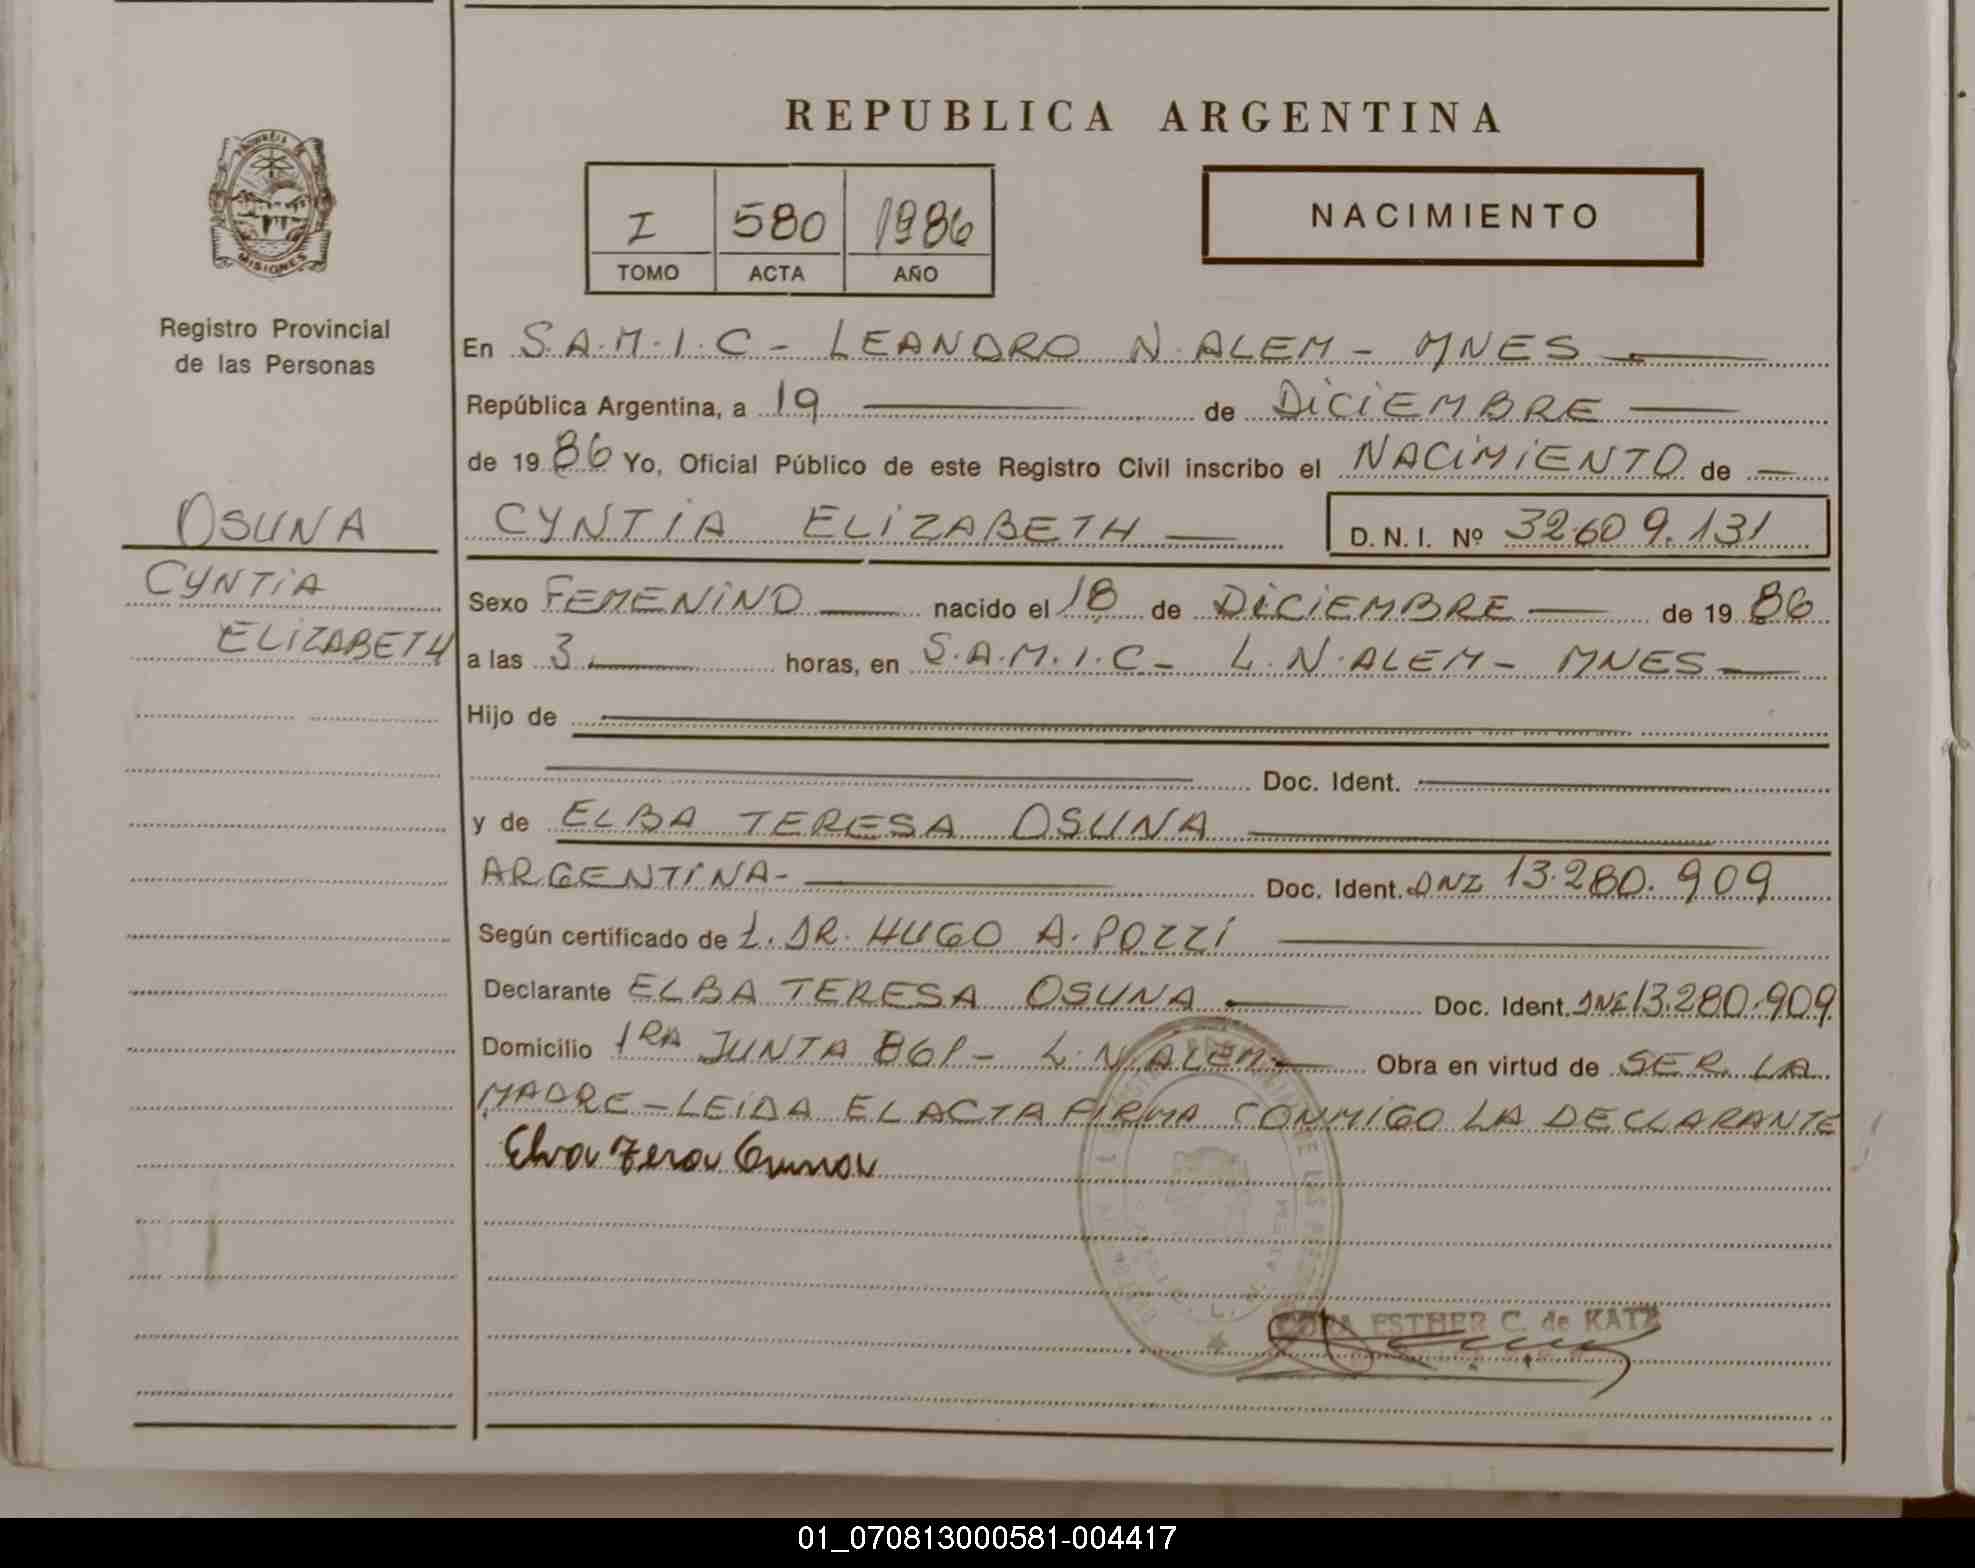 REPUBLICA ARGENTINA
MISIONES
Registro Provincial
de las Personas
I 580 1986
TOMO ACTA AÑO
NACIMIENTO
En S.A.M.I.C - LEANDRO N. ALEM - MNES
República Argentina, a 19 de DICIEMBRE
de 1986 Yo, Oficial Público de este Registro Civil inscribo el NACIMIENTO de
OSUNA
CYNTIA
ELIZABETH
CYNTIA ELIZABETH D.N.I. Nº 32.609.131
Sexo FEMENINO nacido el 18 de DICIEMBRE de 1986
a las 3 horas, en S.A.M.I.C - L.N. ALEM - MNES
Hijo de
Doc. Ident.
y de ELBA TERESA OSUNA
ARGENTINA- Doc. Ident. DNI 13.280.909
Según certificado de DR. HUGO A. POZZI
Declarante ELBA TERESA OSUNA Doc. Ident. DNI 13.280.909
Domicilio 1RA JUNTA 861 - L.N. ALEM Obra en virtud de SER LA
MADRE - LEIDA EL ACTA FIRMA CONMIGO LA DECLARANTE
ESTHER C. de KATZ
01_070813000581-004417